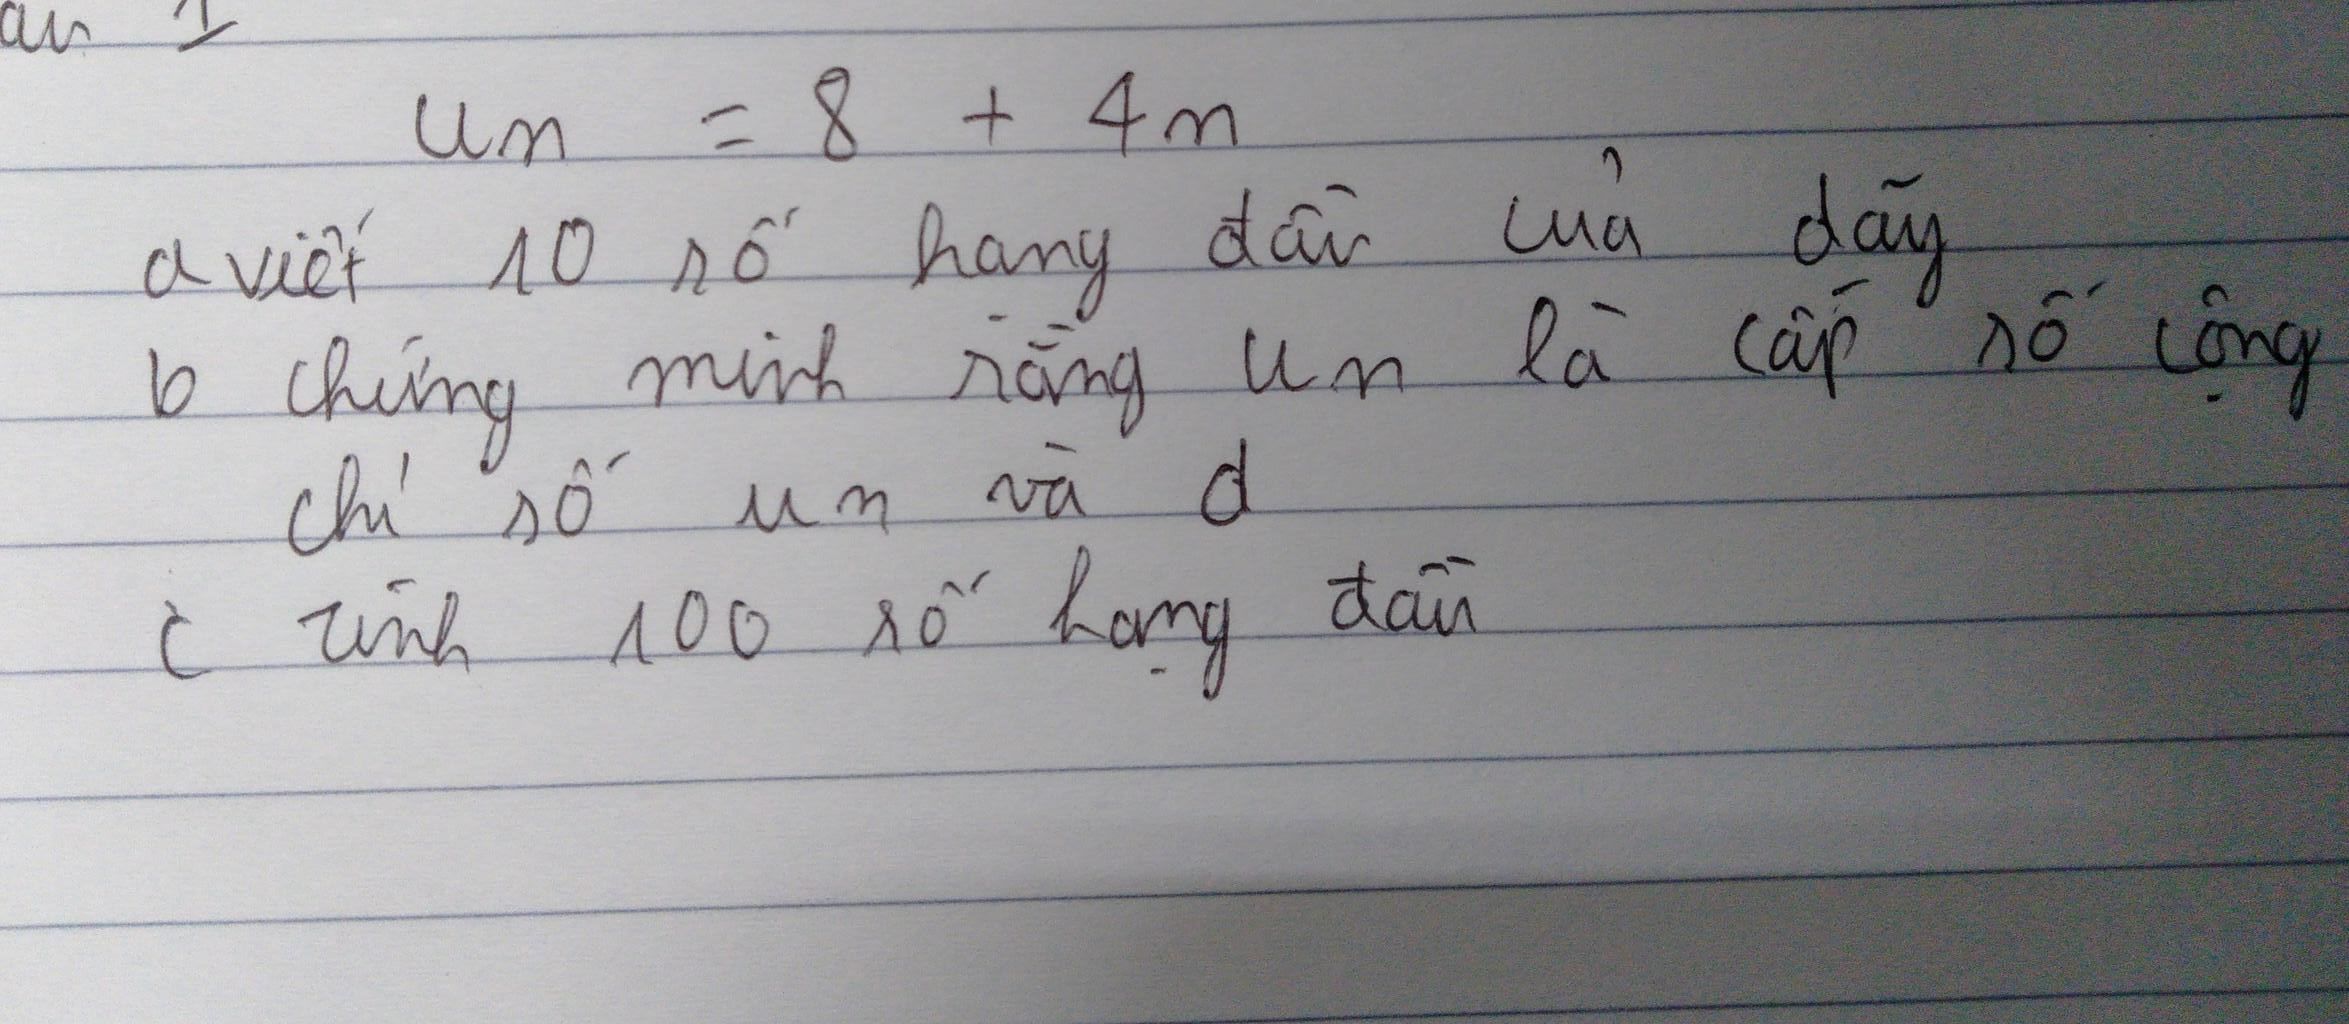 un = 8 + 4n
a viết 10 số hạng đầu của dãy
b chứng minh rằng un là cấp số cộng
chỉ số un và d
c tính 100 số hạng đầu